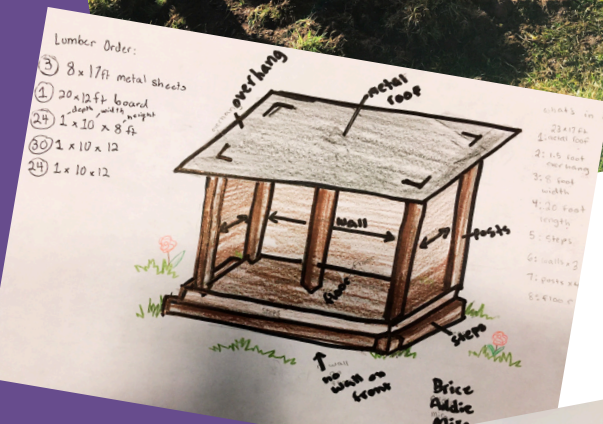 Lumber Order:
③ 8 x 17ft metal sheets
① 20 x 12 ft board
depth width height
㉔ 1 x 10 x 8 ft
㉚ 1 x 10 x 12
㉔ 1 x 10 x 12
overhang
metal roof
wall
posts
floor
steps
steps
no wall on front
Brice
Addie
whats in
23x17ft
1: metal roof
2: 1.5 foot
overhang
3: 8 foot
width
4: 20 foot
length
5: steps
6: walls x 3
7: posts
8: floor